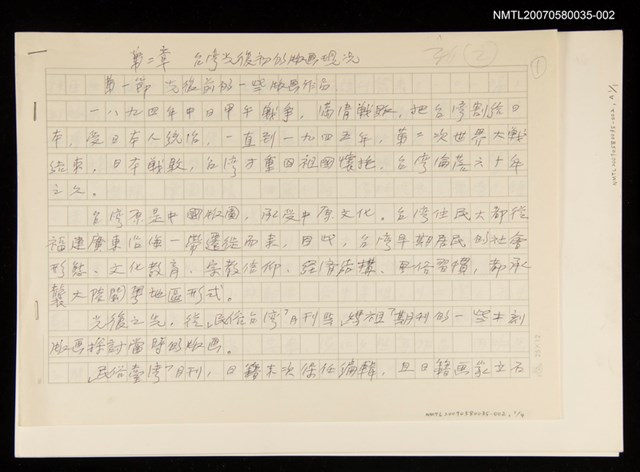 NMTL20070580035-002
第二章 台湾光復初的版画現況
①
第一節 光復前的一些版画作品
一八九四年中日甲午戦争,満清戦敗,把台湾割給日
本,受日本人統治,一直到一九四五年,第二次世界大戦
結束,日本戦敗,台湾才重回祖國懐抱,台湾淪落六十年
之久。
台湾原是中國版圖,承受中原文化。台湾住民大都從
福建廣東沿海一帶遷徙而來,因此,台湾早期居民的社會
形態、文化教育、宗教信仰、經濟結構、風俗習慣,都承
襲大陸閩粤地區形式。
光復之先。從「民俗台湾」月刊与「媽祖」期刊的一些木刻
版画探討當時的版画。
「民俗臺湾」月刊,日籍末次保任編輯,且日籍画家立石
NMTL20070580035-002, 1/4